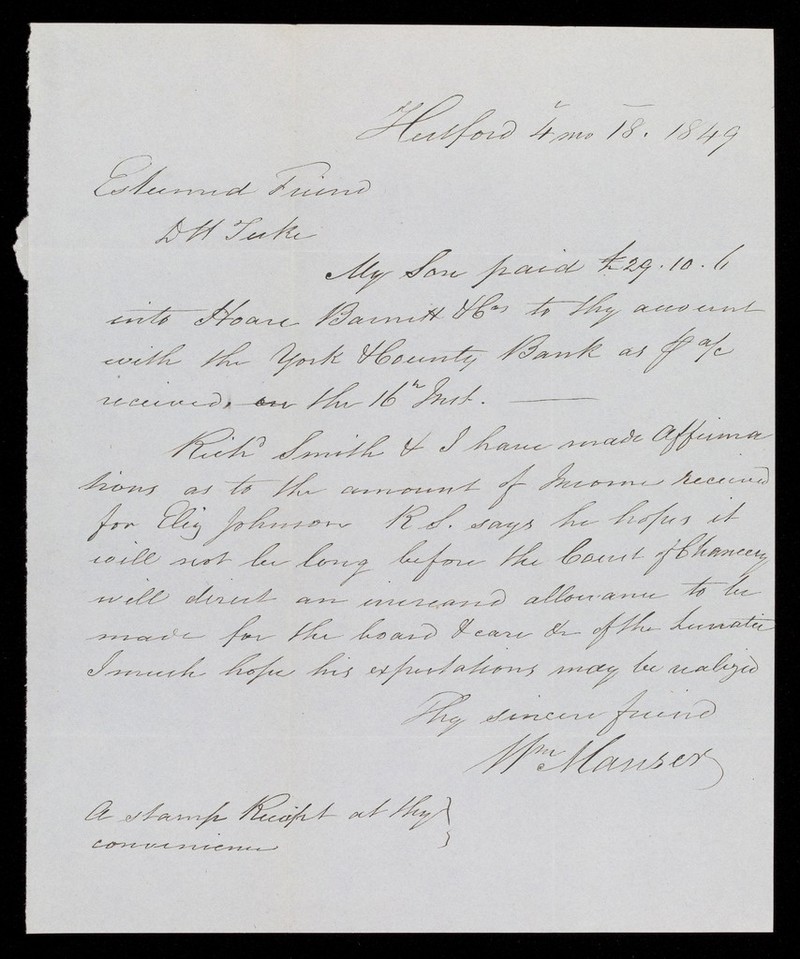 Hertford 4 mo 18. 1849
Esteemed Friend
D H Tuke
My Son paid £29.10.6
into Hoare Barnett & Cos to thy account
with the York & County Bank as P a/c
received, on the 16th Inst.
Richd Smith & I have made Affirma
tions as to the amount of Income received
for Eliz Johnson R S. says he hopes it
will not be long before the Court of Chancery
will direct an increased allowance to be
made for the board & care &c of the Lunatic
I much hope his expectations may be realized
Thy sincere friend
Wm Manser
A stamp Receipt at thy
convenience